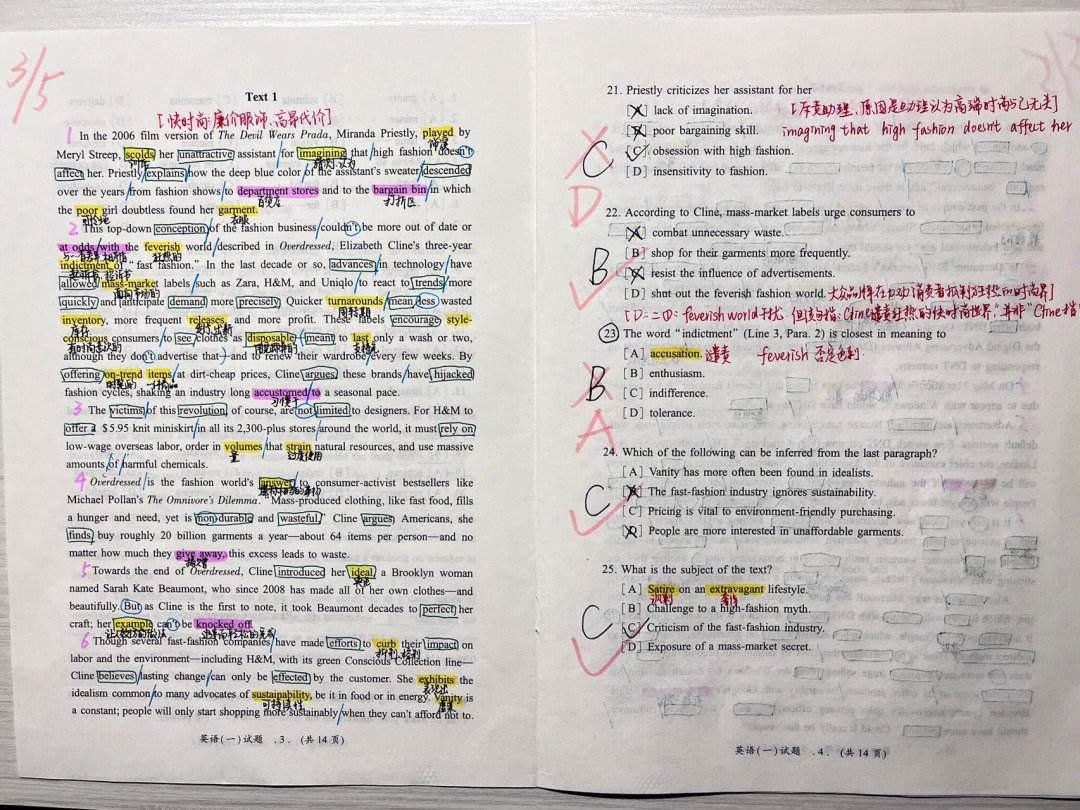 3/5
Text 1
[快时尚:廉价服饰、高昂代价]
1 In the 2006 film version of The Devil Wears Prada, Miranda Priestly, played by
Meryl Streep, scolds her unattractive assistant for imagining that high fashion doesn't
affect her. Priestly explains how the deep blue color of the assistant's sweater descended
over the years from fashion shows to department stores and to the bargain bin in which
百货店
打折区
the poor girl doubtless found her garment.
衣服
2 This top-down conception of the fashion business couldn't be more out of date or
at odds with the feverish world described in Overdressed, Elizabeth Cline's three-year
狂热的
indictment of "fast fashion." In the last decade or so, advances in technology have
allowed mass-market labels such as Zara, H&M, and Uniqlo to react to trends more
面向市场的
quickly and anticipate demand more precisely. Quicker turnarounds mean less wasted
周转期
inventory, more frequent releases, and more profit. These labels encourage style-
库存
conscious consumers to see clothes as disposable—meant to last only a wash or two,
although they don't advertise that—and to renew their wardrobe every few weeks. By
offering on-trend items at dirt-cheap prices, Cline argues, these brands have hijacked
fashion cycles, shaking an industry long accustomed to a seasonal pace.
习惯于
3 The victims of this revolution, of course, are not limited to designers. For H&M to
offer a $5.95 knit miniskirt in all its 2,300-plus stores around the world, it must rely on
low-wage overseas labor, order in volumes that strain natural resources, and use massive
量
过度使用
amounts of harmful chemicals.
4 Overdressed is the fashion world's answer to consumer-activist bestsellers like
Michael Pollan's The Omnivore's Dilemma. "Mass-produced clothing, like fast food, fills
a hunger and need, yet is non-durable and wasteful," Cline argues. Americans, she
finds, buy roughly 20 billion garments a year—about 64 items per person—and no
matter how much they give away, this excess leads to waste.
捐赠
5 Towards the end of Overdressed, Cline introduced her ideal, a Brooklyn woman
named Sarah Kate Beaumont, who since 2008 has made all of her own clothes—and
beautifully. But as Cline is the first to note, it took Beaumont decades to perfect her
craft; her example can't be knocked off.
6 Though several fast-fashion companies have made efforts to curb their impact on
抑制、控制
labor and the environment—including H&M, with its green Conscious Collection line—
Cline believes lasting change can only be effected by the customer. She exhibits the
表现出
idealism common to many advocates of sustainability, be it in food or in energy. Vanity is
可持续性
虚荣
a constant; people will only start shopping more sustainably when they can't afford not to.
英语(一)试题 .3. (共14页)
21. Priestly criticizes her assistant for her
[A] lack of imagination.
[斥责助理,原因是助理以为高端时尚与己无关]
[B] poor bargaining skill.
imagining that high fashion doesn't affect her
[C] obsession with high fashion.
C
[D] insensitivity to fashion.
D
22. According to Cline, mass-market labels urge consumers to
[A] combat unnecessary waste.
[B] shop for their garments more frequently.
B
[C] resist the influence of advertisements.
[D] shut out the feverish fashion world.
23. The word "indictment" (Line 3, Para. 2) is closest in meaning to
[A] accusation. 谴责 feverish 否定色彩
[B] enthusiasm.
B
[C] indifference.
[D] tolerance.
A
24. Which of the following can be inferred from the last paragraph?
[A] Vanity has more often been found in idealists.
[B] The fast-fashion industry ignores sustainability.
C
[C] Pricing is vital to environment-friendly purchasing.
[D] People are more interested in unaffordable garments.
25. What is the subject of the text?
[A] Satire on an extravagant lifestyle.
讽刺
奢侈
[B] Challenge to a high-fashion myth.
C
[C] Criticism of the fast-fashion industry.
[D] Exposure of a mass-market secret.
英语(一)试题 .4. (共14页)